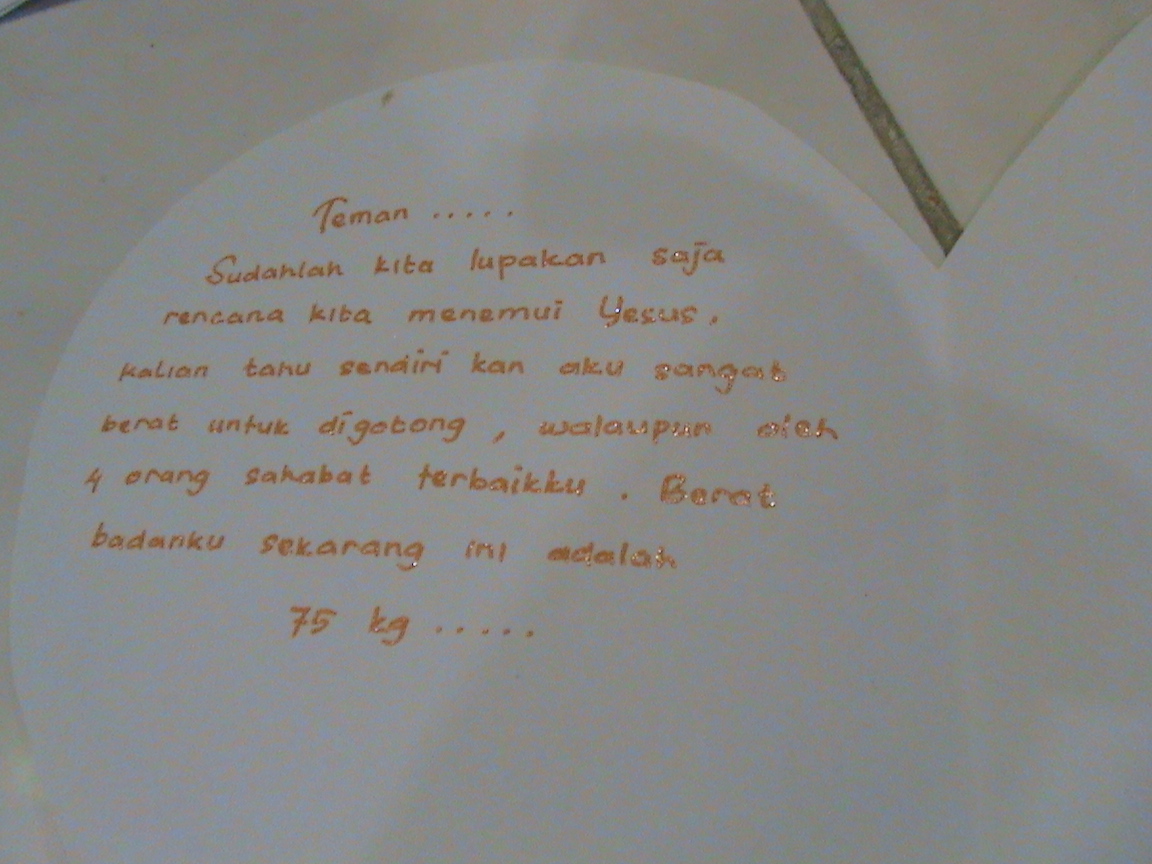 Teman .....
Sudahlah kita lupakan saja
rencana kita menemui Yesus,
kalian tahu sendiri kan aku sangat
berat untuk digotong, walaupun oleh
4 orang sahabat terbaikku. Berat
badanku sekarang ini adalah
75 kg .....